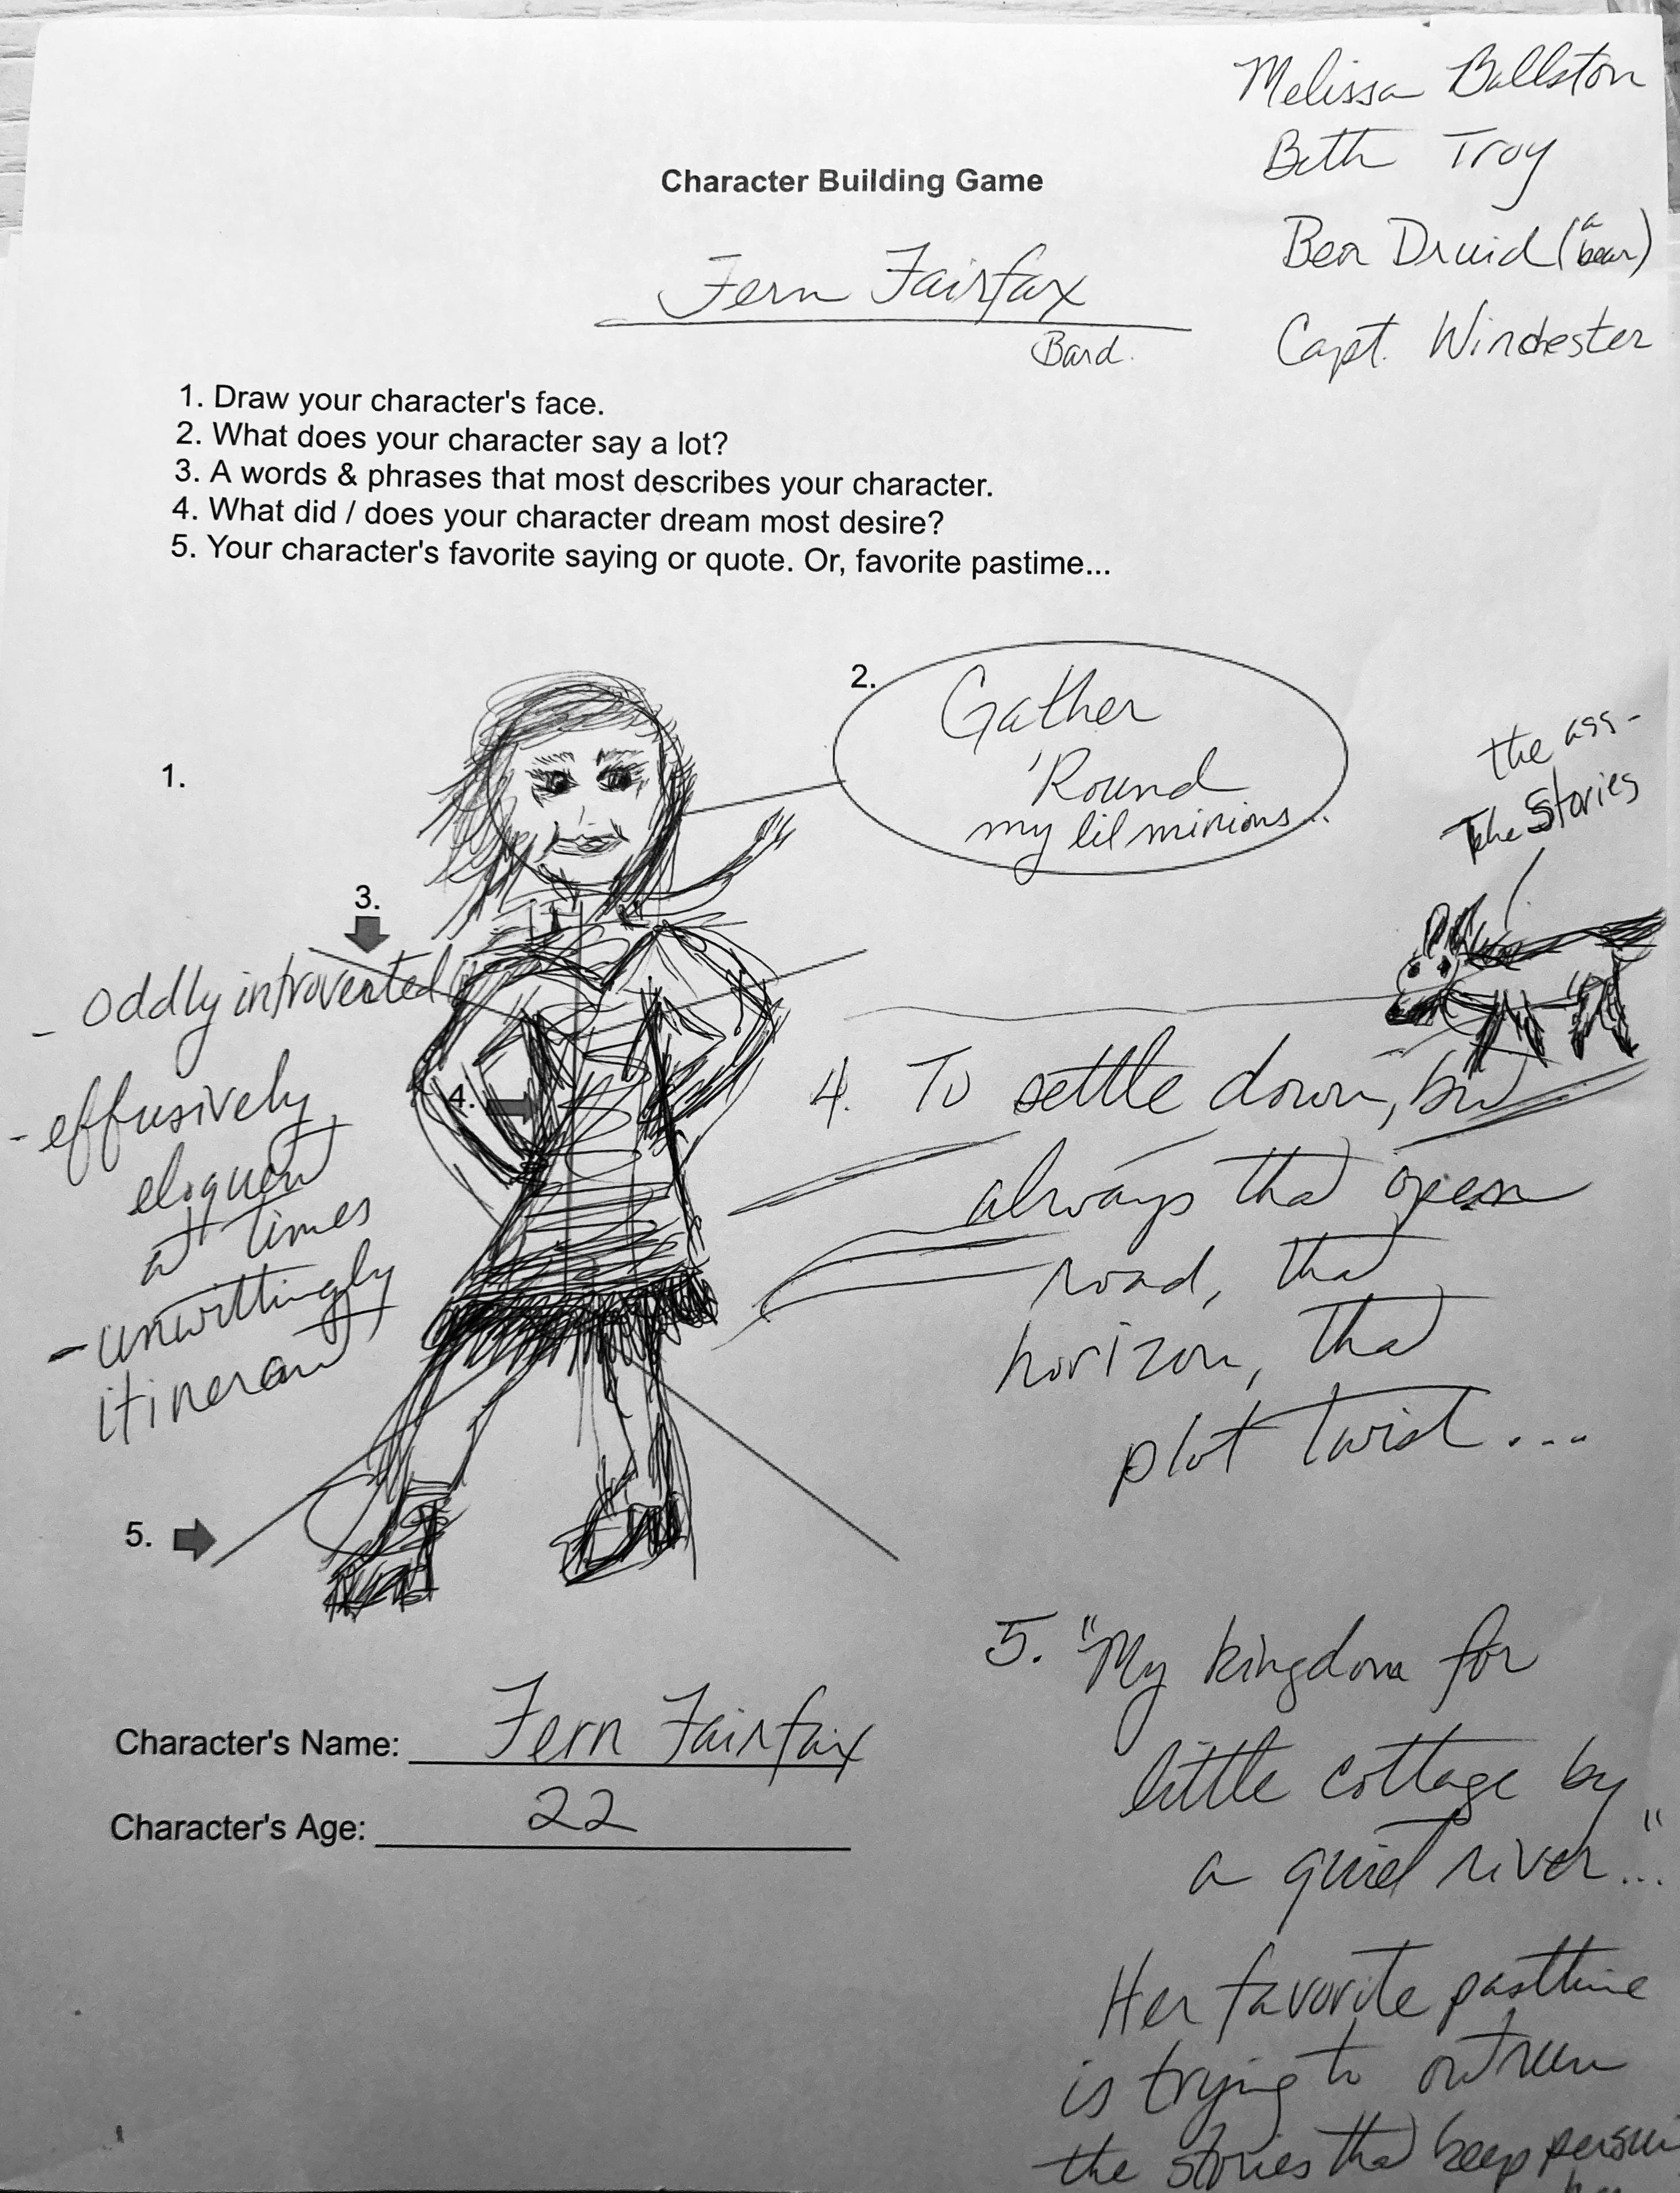 Melissa Ballston
Beth Troy
Ben Druid (a bear)
Capt. Winchester
Character Building Game
Fern Fairfax
Bard.
1. Draw your character's face.
2. What does your character say a lot?
3. A words & phrases that most describes your character.
4. What did / does your character dream most desire?
5. Your character's favorite saying or quote. Or, favorite pastime...
1.
2.
Gather
'Round
my lil minions...
the ass-
The Stories
3.
- oddly introverted
- effusively
eloquent
at times
- unwittingly
itinerant
4.
4. To settle down, but
always that open
road, that
horizon, that
plot twist...
5.
5. "My kingdom for
little cottage by
a quiet river..."
Her favorite pasttime
is trying to outrun
the stories that keep
Character's Name: Fern Fairfax
Character's Age: 22